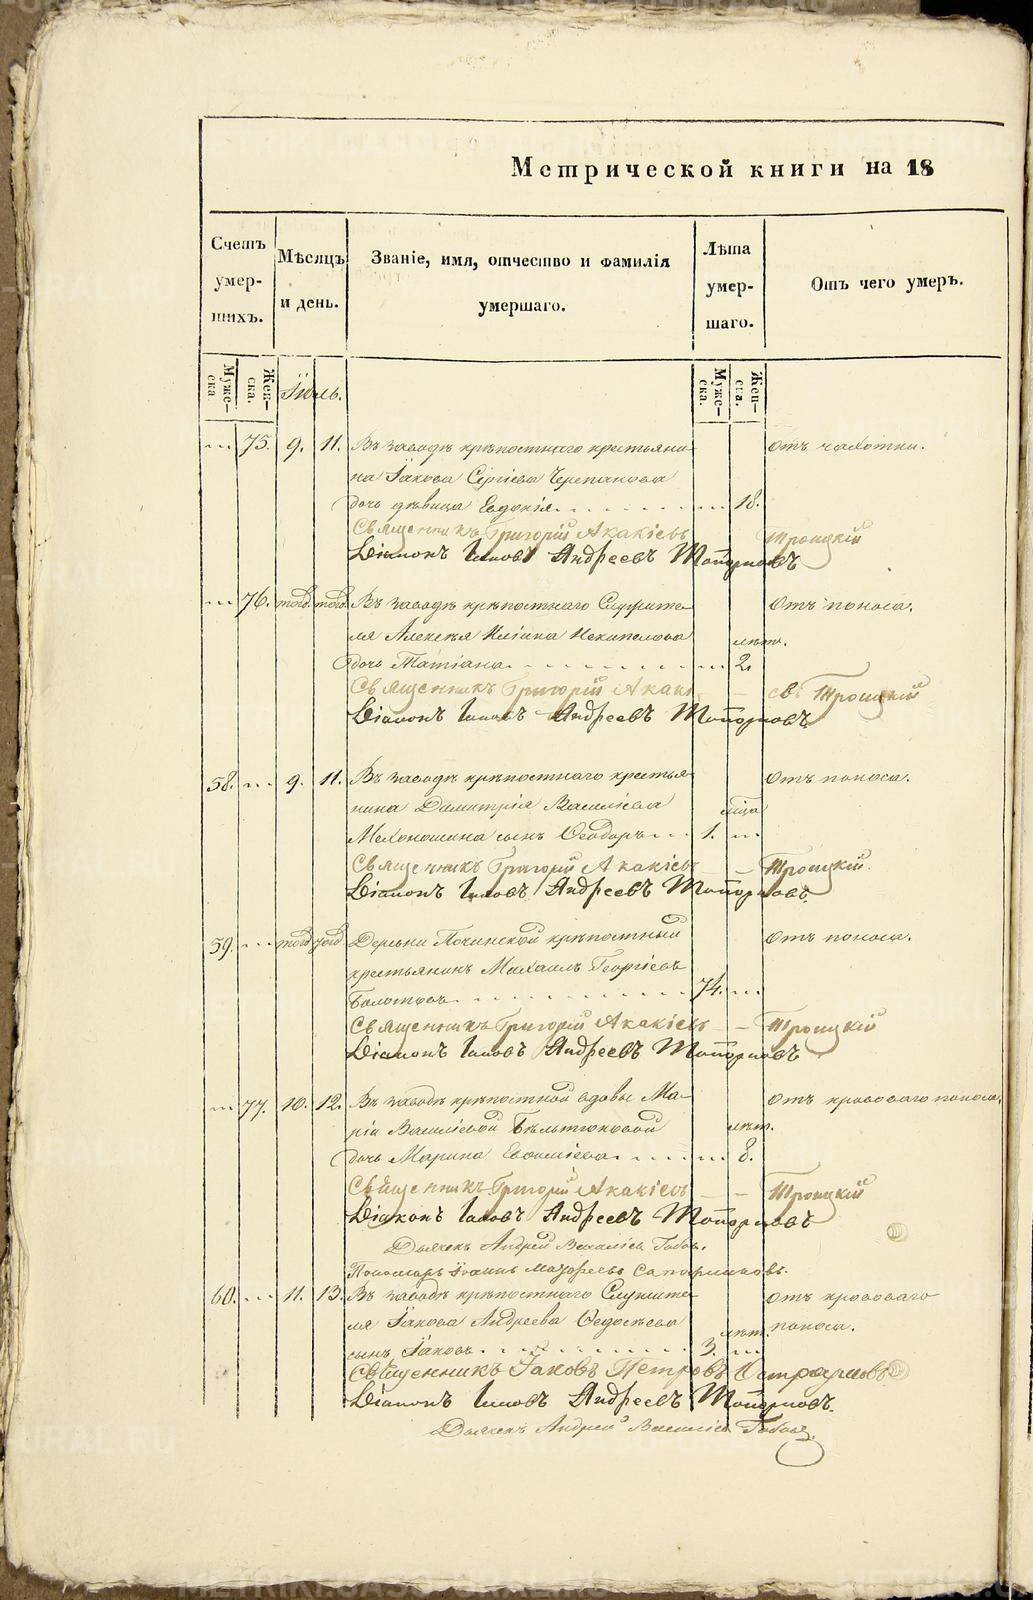 Метрической книги на 18
Счетъ умершихъ.
Мѣсяцъ и день.
Званіе, имя, отчество и фамилія умершаго.
Лѣта умершаго.
Отъ чего умеръ.
Мужеска
Женска.
Іюль.
Мужеска.
Женска.
75. 9. 11. Въ заводѣ крѣпостнаго крестьяни-
на Іакова Сергіева Черепанова
дочь дѣвица Евдокія 18. Отъ чахотки.
Священникъ Григорій Акакіевъ Троицкій
Діаконъ Іаковъ Андреевъ Топорковъ
76. того того Въ заводѣ крѣпостнаго Служите-
ля Алексѣя Иліина Некипелова лѣт.
дочь Татіана 2. Отъ поноса.
Священникъ Григорій Акакіевъ Троицкій
Діаконъ Іаковъ Андреевъ Топорковъ
58. 9. 11. Въ заводѣ крѣпостнаго крестья-
нина Димитрія Василіева мѣца
Мехоношина сынъ Ѳеодоръ 1. Отъ поноса.
Священникъ Григорій Акакіевъ Троицкій
Діаконъ Іаковъ Андреевъ Топорковъ
59. того того Деревни крѣпостный
крестьянинъ Михаилъ Георгіевъ
Болотовъ 74. Отъ поноса.
Священникъ Григорій Акакіевъ Троицкій
Діаконъ Іаковъ Андреевъ Топорковъ
77. 10. 12. Въ заводѣ крѣпостной вдовы Ма-
ріи Василіевой Бѣльтюковой лѣт.
дочь Марина Евѳиміева 8. Отъ кроваваго поноса.
Священникъ Григорій Акакіевъ Троицкій
Діаконъ Іаковъ Андреевъ Топорковъ
Дьячекъ Андрей Василіевъ
Пономарь Іоаннъ
60. 11. 13. Въ заводѣ крѣпостнаго Служите-
ля Іакова Андреева Ѳедосѣева лѣт.
сынъ Іаковъ 3. Отъ кроваваго поноса.
Священникъ Іаковъ Петровъ
Діаконъ Іаковъ Андреевъ Топорковъ.
Дьячекъ Андрей Василіевъ
METRIKI.GASO-URAL.RU